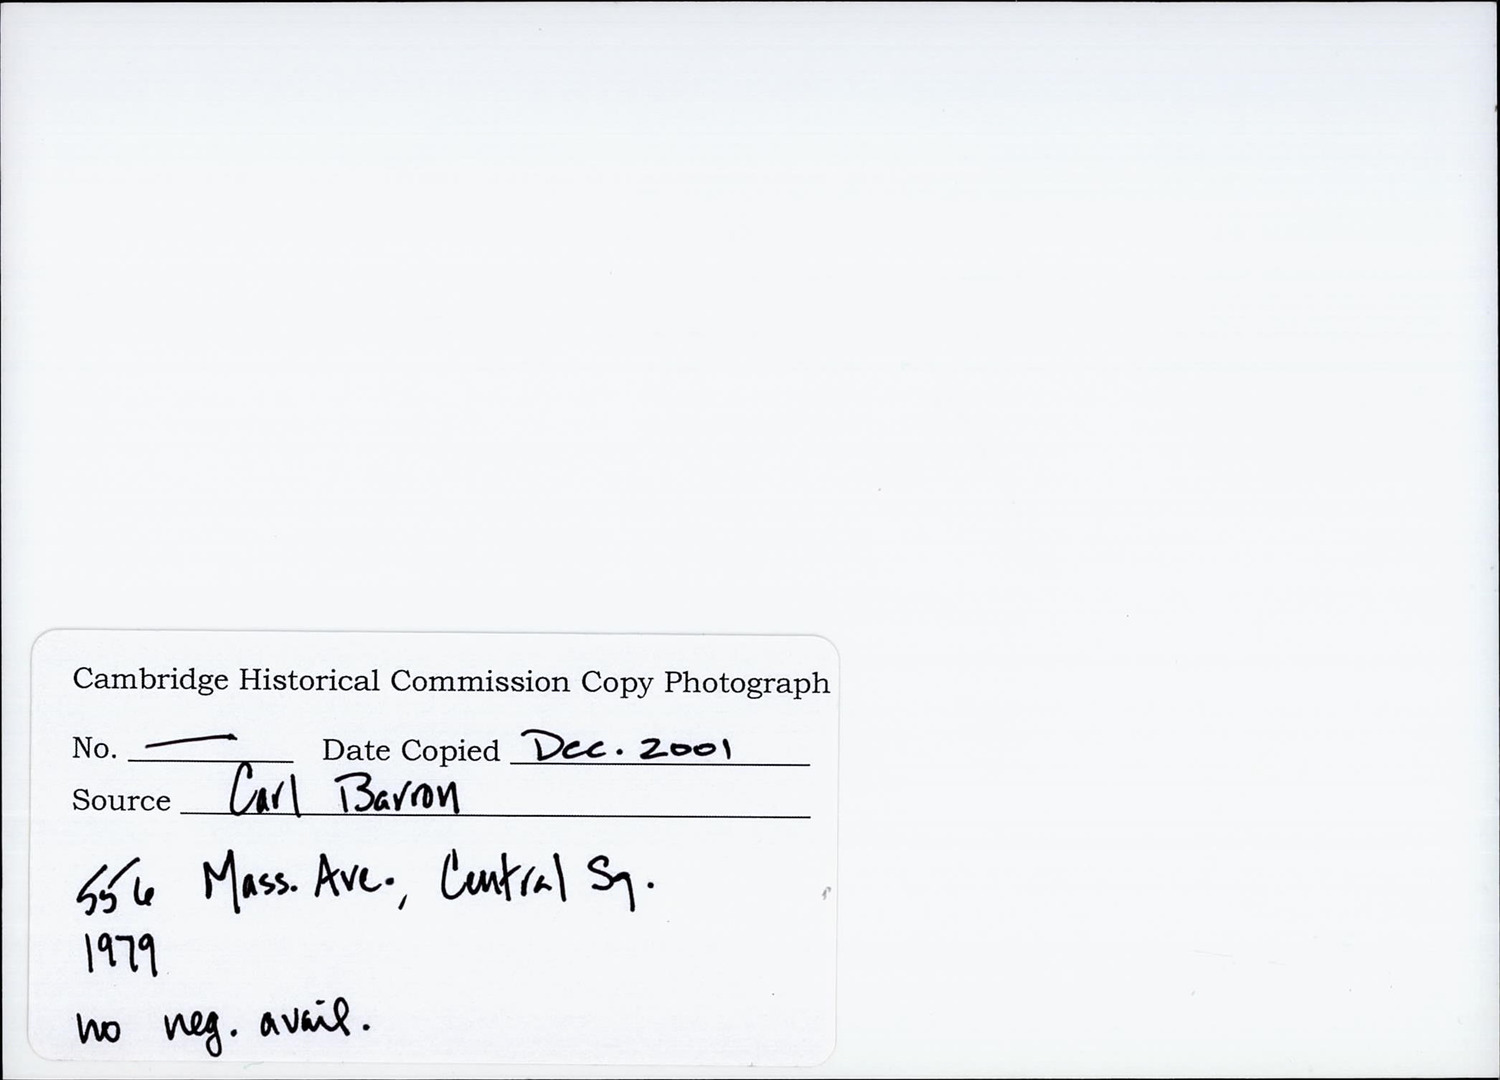 Cambridge Historical Commission Copy Photograph
No. — Date Copied Dec. 2001
Source Carl Barron
556 Mass. Ave., Central Sq.
1979
no neg. avail.